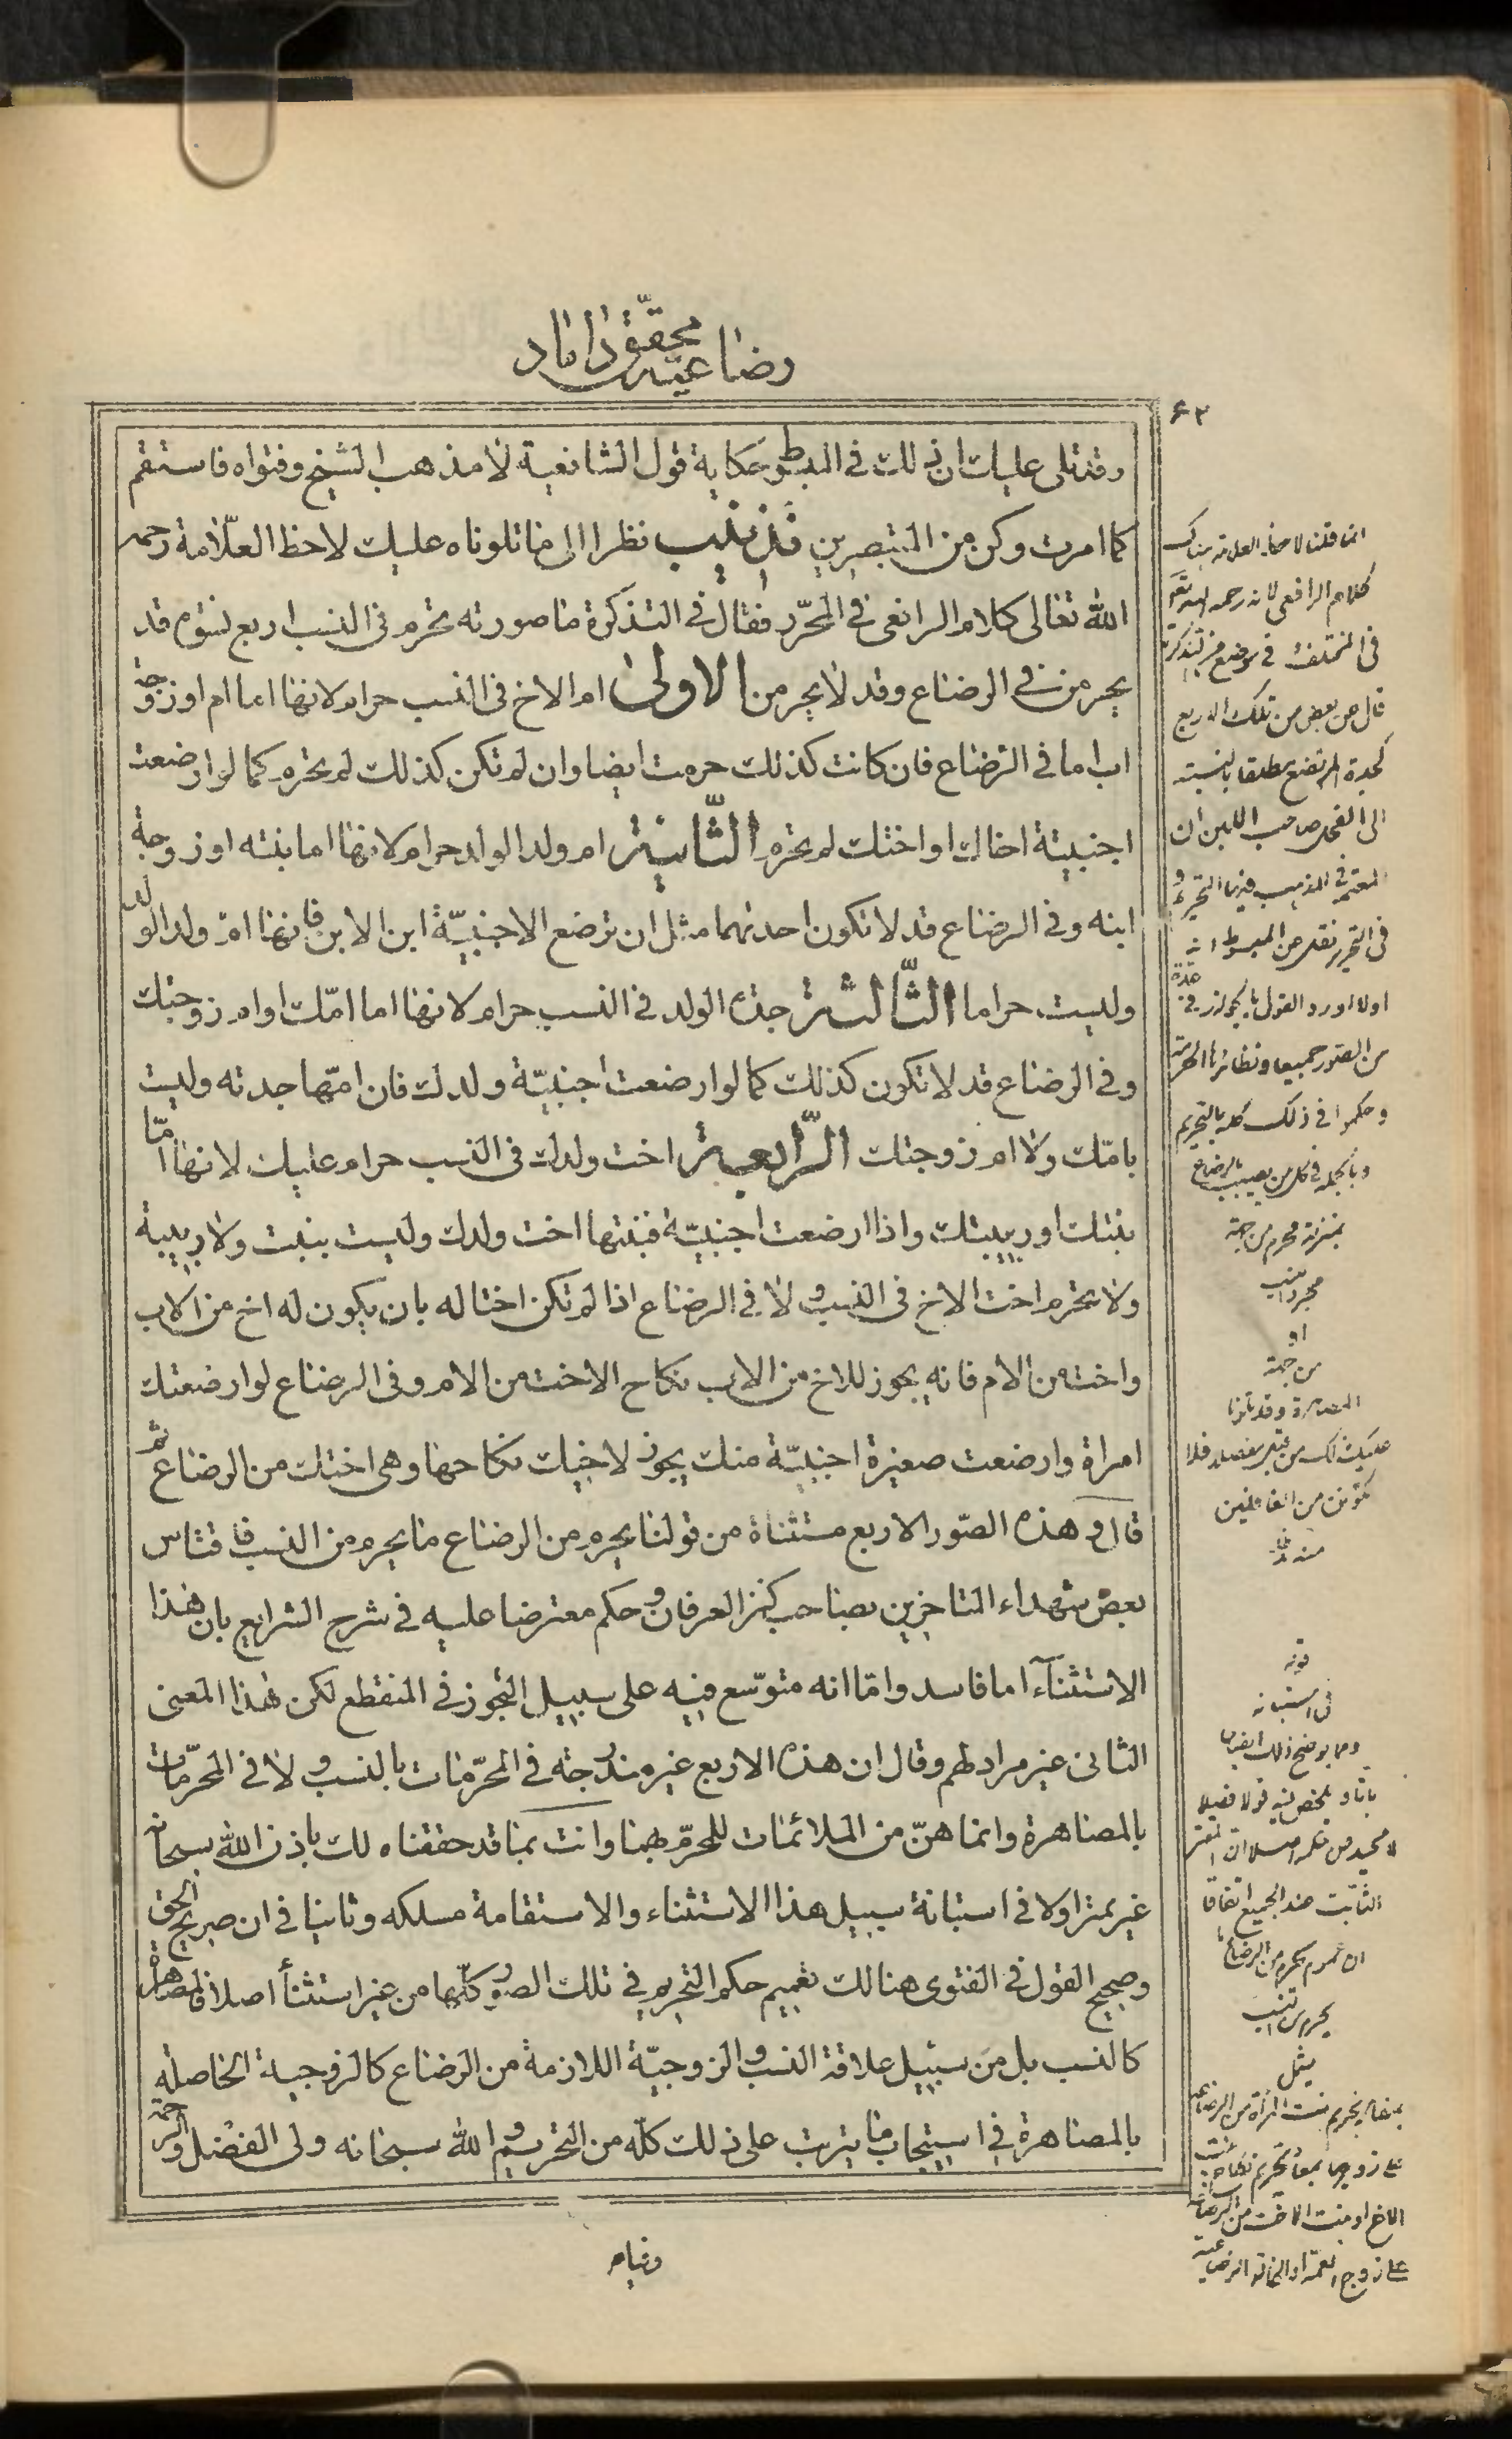 رضاعیه محقق داماد
۶۲
وقد تلی علیك ان ذلك فی المبسوط حکایة قول الشافعیة لا مذهب الشیخ وفتواه فاستقم
کما امرت وکن من المتبصرین تذنیب نظرا الی ما تلوناه علیك لاحظ العلّامة رحمه
الله تعالی کلام الرافعی فی المحرّر فقال فی التذکرة ما صورته یحرم فی النسب اربع نسوة قد
یحرمن فی الرضاع وقد لا یحرمن الاولی ام الاخ فی النسب حرام لانها اما ام او زوجة
اب اما فی الرضاع فان کانت کذلك حرمت ایضا وان لم تکن کذلك لم یحرم کما لو ارضعت
اجنبیّة اخاك او اختك لم یحرم الثّانیة ام ولد الولد حرام لانها اما بنته او زوجة
ابنه وفی الرضاع قد لا تکون احدیهما مثل ان ترضع الاجنبیّة ابن الابن فانها امّ ولد الولد
ولیست حراما الثّالثة جدة الولد فی النسب حرام لانها اما امّك او ام زوجتك
وفی الرضاع قد لا تکون کذلك کما لو ارضعت اجنبیّة ولدك فان امّها جدته ولیست
بامّك ولا ام زوجتك الرّابعة اخت ولدك فی النسب حرام علیك لانها امّا
بنتك او ربیبتك واذا ارضعت اجنبیّة فبنتها اخت ولدك ولیست ببنت ولا ربیبة
ولا یحرم اخت الاخ فی النسب ولا فی الرضاع اذا لم تکن اختا له بان یکون له اخ من الاب
واخت من الام فانه یجوز للاخ من الاب نکاح الاخت من الام وفی الرضاع لو ارضعتك
امراة وارضعت صغیرة اجنبیّة منك یجوز لاخیك نکاحها وهی اختك من الرضاع ثم
قال وهذه الصّور الاربع مستثناة من قولنا یحرم من الرضاع ما یحرم من النسب فاقتاس
بعض شهداء المتاخرین بصاحب کنز العرفان وحکم معترضا علیه فی شرح الشرایع بان هذا
الاستثناء اما فاسد وامّا انه متوسّع فیه علی سبیل التجوز فی المنقطع لکن هذا المعنی
الثانی غیر مراد لهم وقال ان هذه الاربع غیر مندرجة فی المحرّمات بالنسب ولا فی المحرّمات
بالمصاهرة وانما هنّ من الملائمات للمحرّم بهما وانت بما قد حققناه لك باذن الله سبحانه
غیر ممتر اولا فی استبانة سبیل هذا الاستثناء والاستقامة مسلکه وثانیا فی ان صریح الحق
وصحیح القول فی الفتوی هنالك تعمیم حکم التحریم فی تلك الصور کلّها من غیر استثناء اصلا فالمصاهرة
کالنسب بل من سبیل علاقة النسب والزوجیّة اللازمة من الرضاع کالزوجیة الحاصلة
بالمصاهرة فی استیجاب ما یترتب علی ذلك کلّه من التحریم والله سبحانه ولی الفضل والرحمة
انما قلنا لاحظ العلامة هناك
کلام الرافعی لانه رحمه الله تعالی
فی المختلف فی موضع من التذکرة
قال عن بعض من تلك الاربع
کجدة المرتضع مطلقا بالنسبة
الی الفحل صاحب اللبن ان
المعتمد فی المذهب فیها التحریم و
فی التحریر نقل عن المبسوط انه
اولا اورد القول بالجواز فی عدة
من الصور جمیعا ونظائرها
وحکموا فی ذلك کله بالتحریم
وبالجملة فی کل من یصیب بالرضاع
بمنزلة محرم من جهة
مجرد النسب
او
من جهة
المصاهرة وقد تلونا
علیك ذلك من قبل مفصلا فلا
تکونن من الغافلین
منه
قوله
فی استبانة
ومما یوضح ذلك ایضا
الثابت عند الجمیع اتفاقا
ان عموم یحرم من الرضاع ما
یحرم من النسب
مثل
الاخ او بنت الاخت من الرضاعة
علی زوج العمة او الخالة الرضاعیة